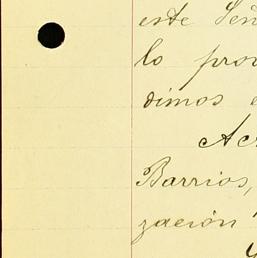 este Señ
lo prov
dimos e
Ac
Barrios,
zación